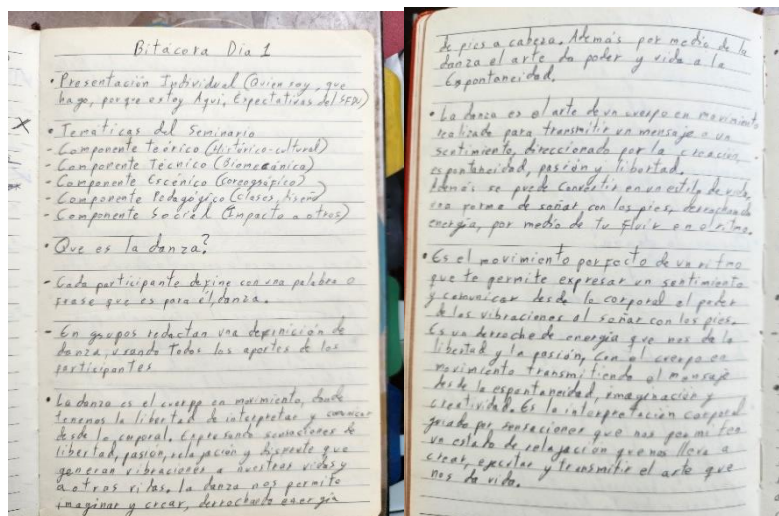 Bitácora Día 1
• Presentación Individual (Quien soy, que
hago, porque estoy Aquí, Expectativas del
• Temáticas del Seminario
- Componente teórico (Histórico-cultural)
- Componente Técnico (Biomecánica)
- Componente Escénico (coreográfico)
- Componente Pedagógico (clases, diseño)
- Componente Social (Impacto a otros)
• Que es la danza?
- Cada participante define con una palabra o
frase que es para él, danza.
- En grupos redactan una definición de
danza, usando todos los aportes de los
participantes
• La danza es el cuerpo en movimiento, donde
tenemos la libertad de interpretar y comunicar
desde lo corporal. Expresando sensaciones de
libertad, pasión, relajación y disfrute que
generan vibraciones a nuestras vidas y
a otras vidas. La danza nos permite
imaginar y crear, derrochando energía
de pies a cabeza. Además por medio de la
danza el arte da poder y vida a la
Espontaneidad.
• La danza es el arte de un cuerpo en movimiento
realizado para transmitir un mensaje o un
sentimiento, direccionado por la creación,
espontaneidad, pasión y libertad.
Además se puede convertir en un estilo de vida,
una forma de soñar con los pies, derrochando
energía, por medio de tu fluir en el ritmo.
• Es el movimiento perfecto de un ritmo
que te permite expresar un sentimiento
y comunicar desde lo corporal el poder
de las vibraciones al soñar con los pies.
Es un derroche de energía que nos da la
libertad y la pasión, con el cuerpo en
movimiento transmitiendo el mensaje
desde la espontaneidad, imaginación y
creatividad. Es la interpretación corporal
guiada por sensaciones que nos permiten
un estado de relajación que nos lleva a
crear, ejecutar y transmitir el arte que
nos da vida.